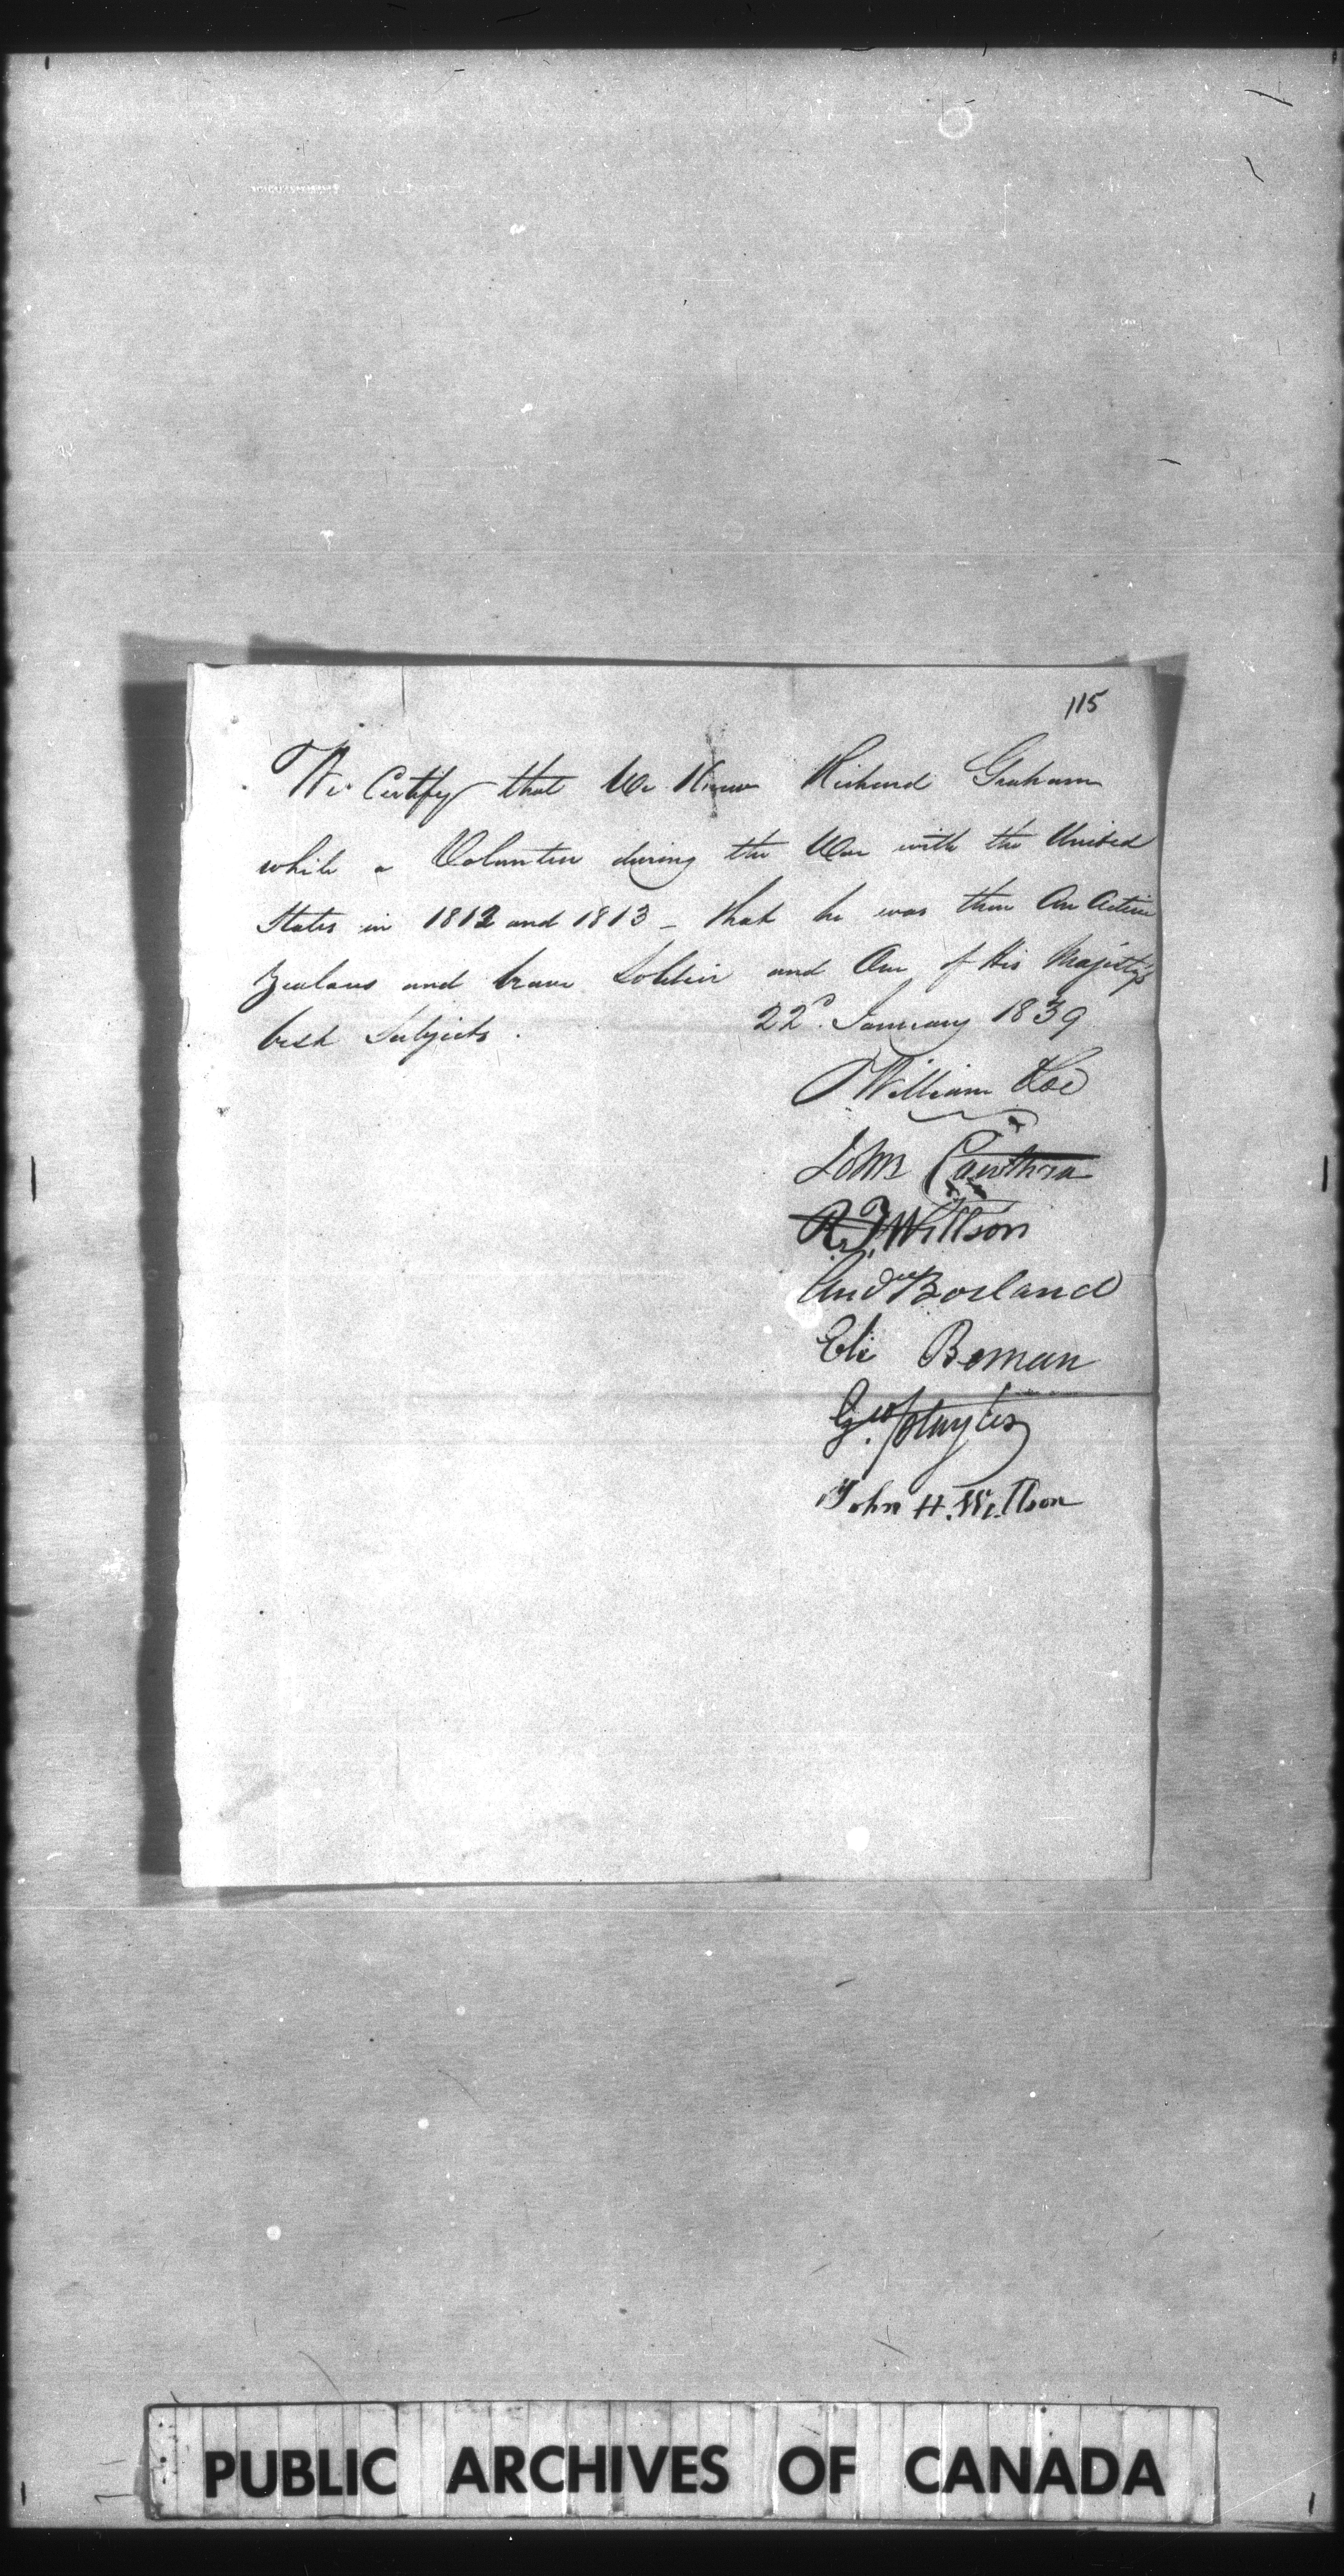 115
We Certify that We Knew Richard Graham
while a Volunteer during the War with the United
States in 1812 and 1813 - that he was then An Active
Zealous and brave Soldier and One of His Majesty's
best Subjects.
22d. January 1839
William Roe
John Cawthra
Willson
Andw Borland
Eli Beman
Geo
John H. Willson
PUBLIC ARCHIVES OF CANADA